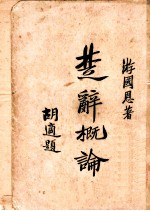 游國恩著
楚辭概論
胡適題